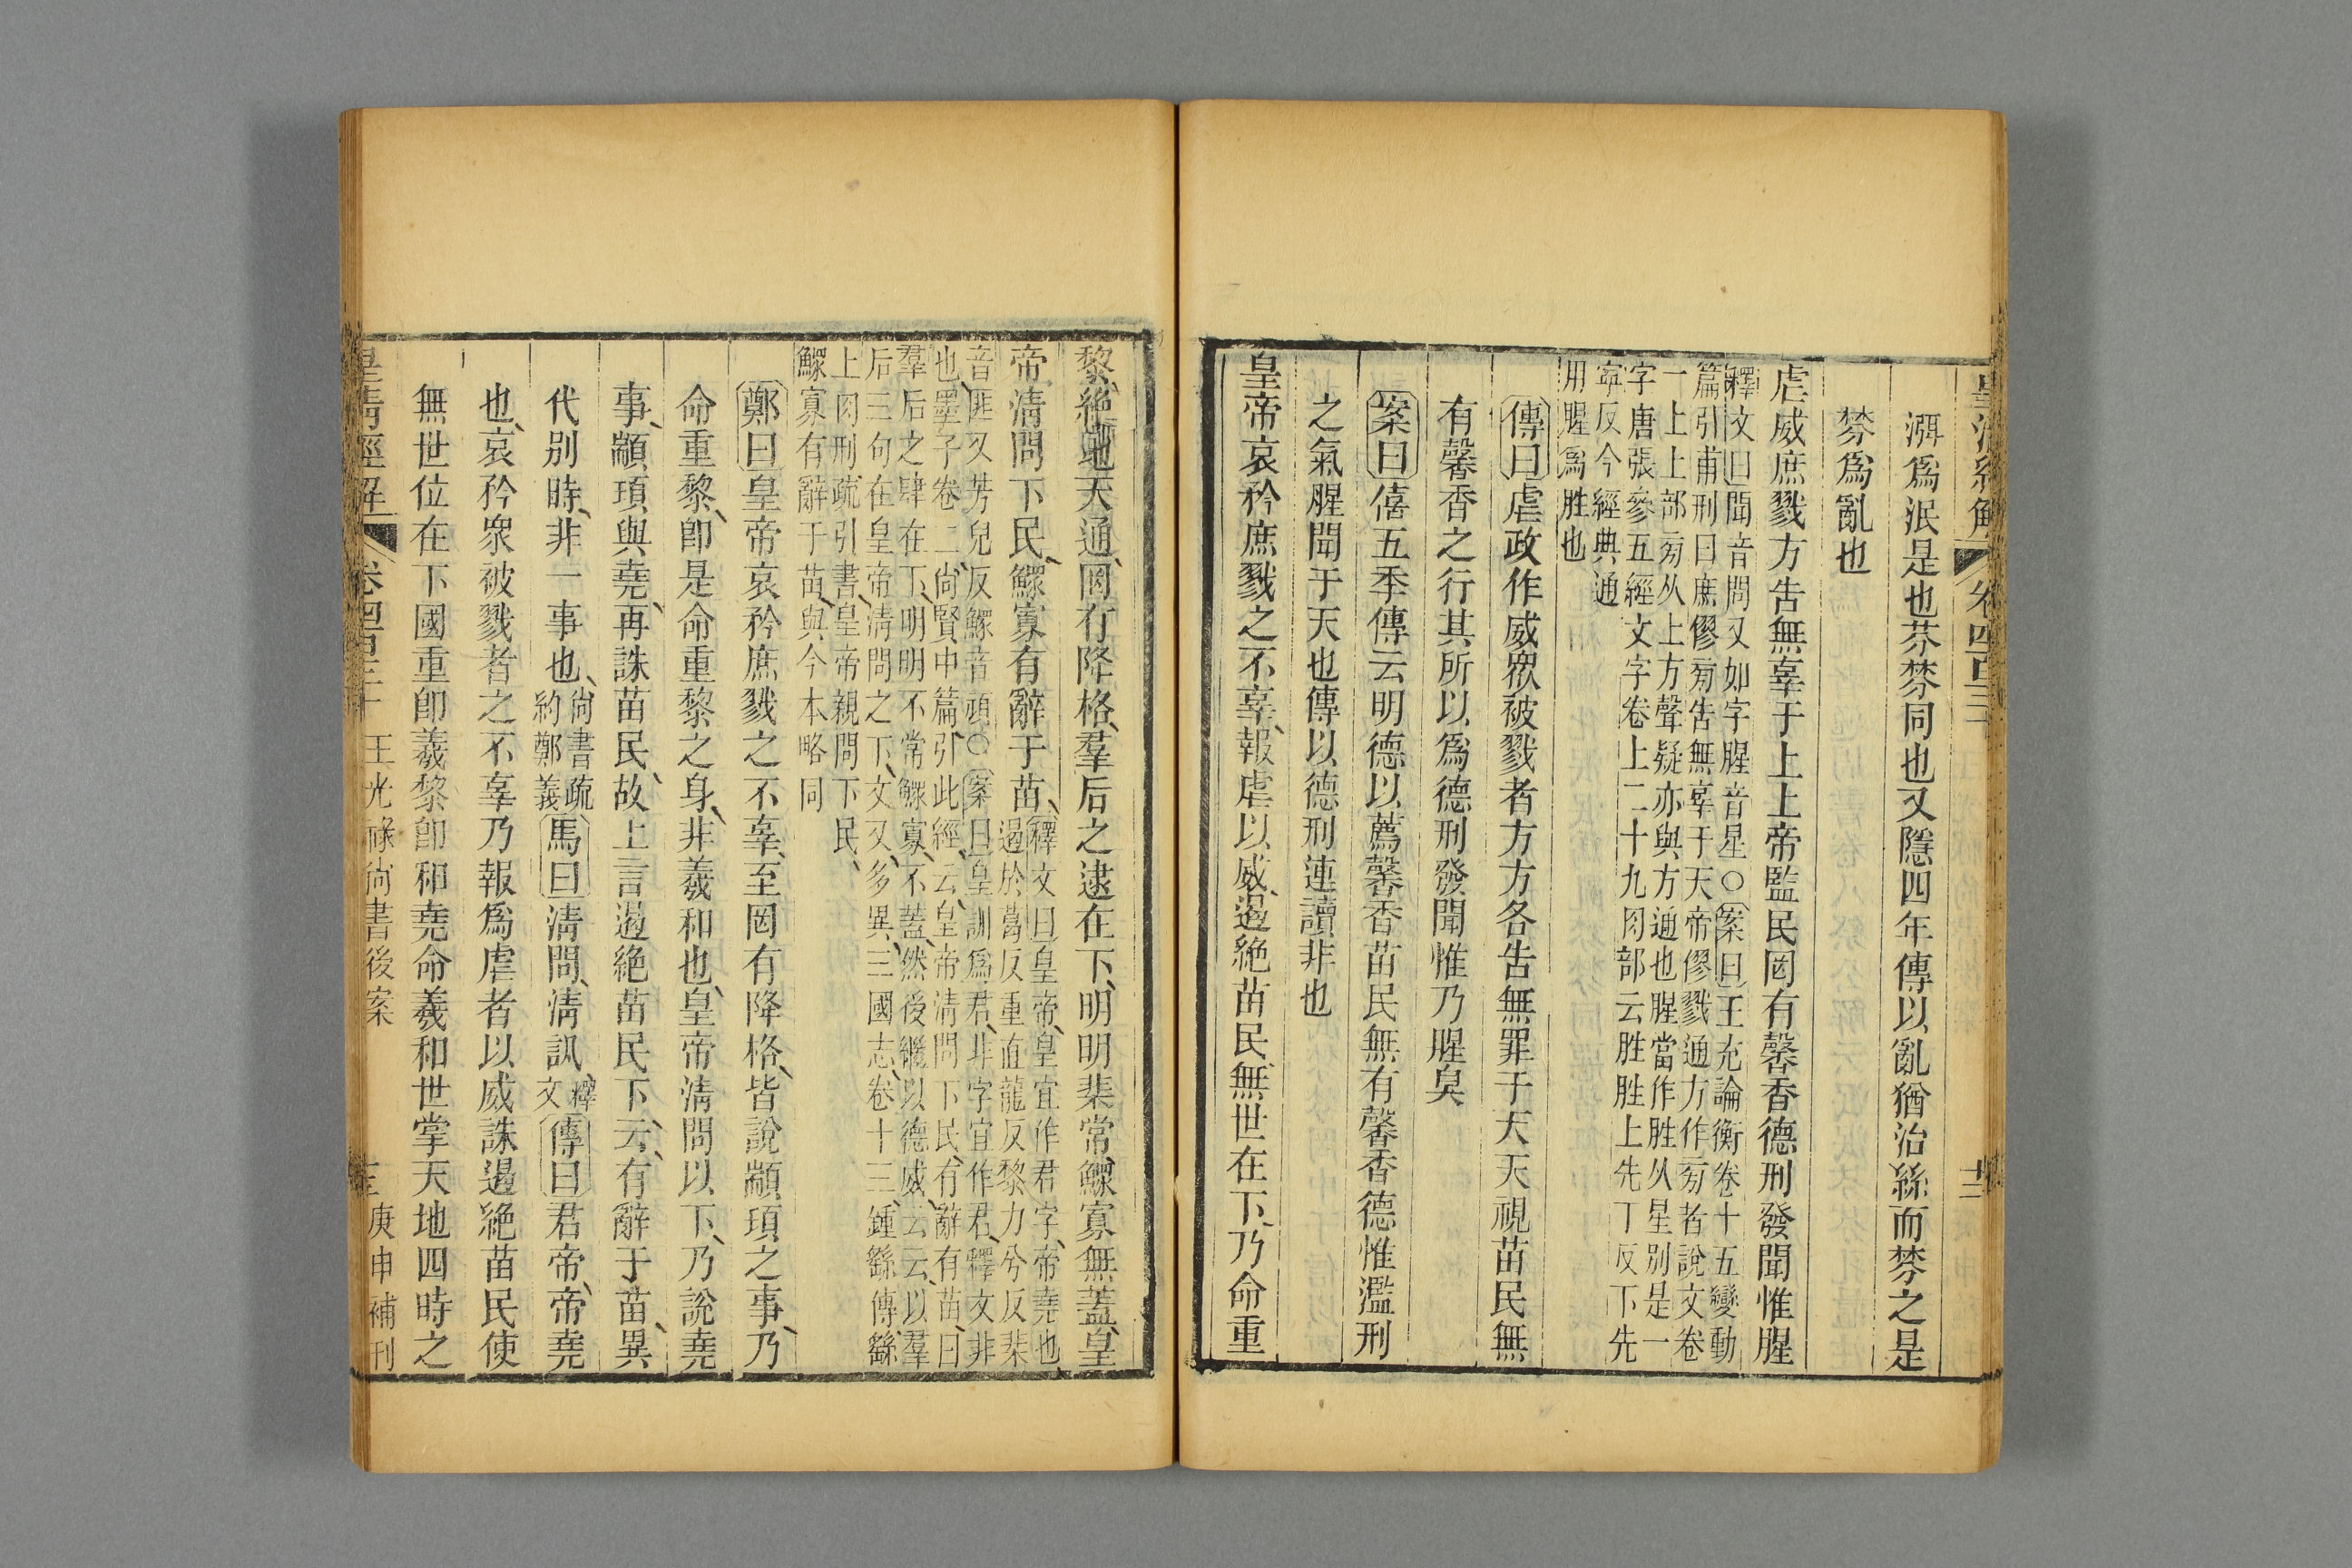 皇清經解
卷四百三十
十三
湣爲泯是也芬棼同也又隱四年傳以亂猶治絲而棼之是
棼爲亂也
虐威庶戮方告無辜于上上帝監民罔有馨香德刑發聞惟腥
釋文曰聞音問又如字腥音星○案曰王充論衡卷十五變動
篇引甫刑曰庶僇旁告無辜于天帝僇戮通方作旁者說文卷
一上上部旁从上方聲疑亦與方通也腥當作胜从星別是一
字唐張參五經文字卷上二十九肉部云胜胜上先丁反下先
定反今經典通
用腥爲胜也
傳曰虐政作威眾被戮者方方各告無罪于天天視苗民無
有馨香之行其所以爲德刑發聞惟乃腥臭
案曰僖五季傳云明德以薦馨香苗民無有馨香德惟濫刑
之氣腥聞于天也傳以德刑連讀非也
皇帝哀矜庶戮之不辜報虐以威遏絕苗民無世在下乃命重
黎絕地天通罔有降格羣后之逮在下明明棐常鰥寡無蓋皇
帝清問下民鰥寡有辭于苗
釋文曰皇帝皇宜作君字帝堯也
遏於葛反重直龍反黎力兮反棐
音匪又芳鬼反鰥音頑○案曰皇訓爲君非字宜作君釋文非
也墨子卷二尚賢中篇引此經云皇帝清問下民有辭有苗曰
羣后之肆在下明明不常鰥寡不蓋然後繼以德威云云以羣
后三句在皇帝清問之下文又多異三國志卷十三鍾繇傳繇
上肉刑疏引書皇帝親問下民
鰥寡有辭于苗與今本略同
鄭曰皇帝哀矜庶戮之不辜至罔有降格皆說顓頊之事乃
命重黎卽是命重黎之身非羲和也皇帝清問以下乃說堯
事顓頊與堯再誅苗民故上言遏絕苗民下云有辭于苗異
代別時非一事也尚書疏約鄭義馬曰清問清訊釋文傳曰君帝帝堯
也哀矜眾被戮者之不辜乃報爲虐者以威誅遏絕苗民使
無世位在下國重卽羲黎卽和堯命羲和世掌天地四時之
皇清經解
卷四百三十
王光祿尚書後案
庚申補刊